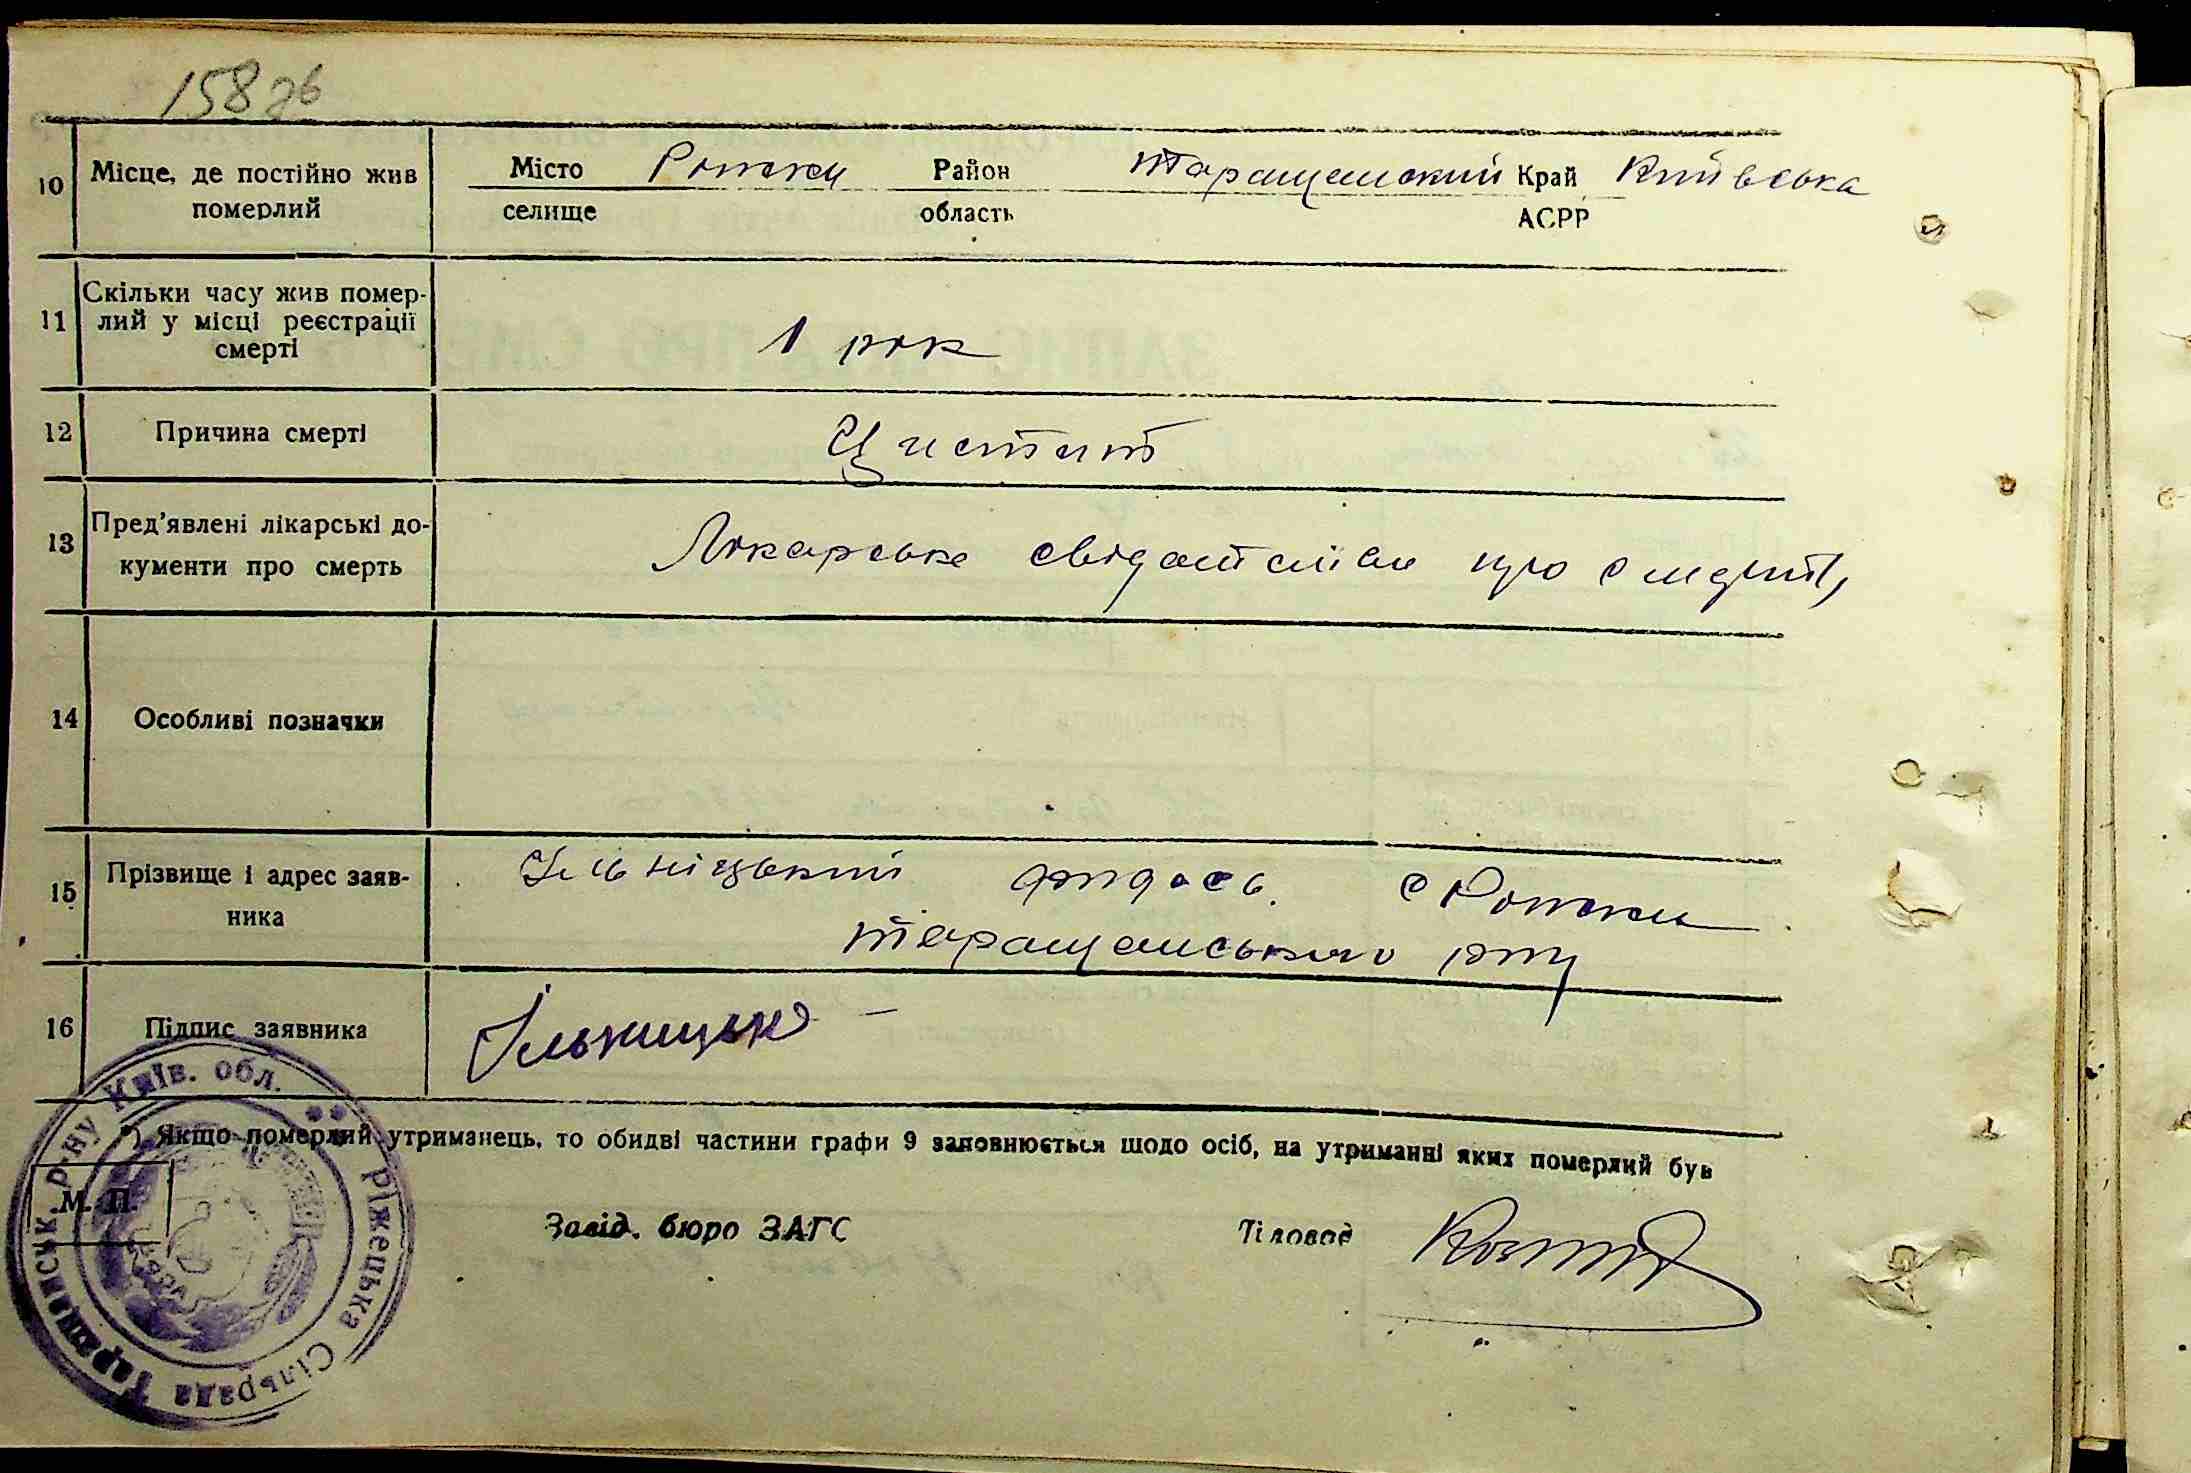 158 зв
10 Місце, де постійно жив померлий
Місто селище Ріжки Район область Таращанский Край АСРР Київська
11 Скільки часу жив помер-
лий у місці реєстрації
смерті
1 рік
12 Причина смерті Цистит
13 Пред'явлені лікарські до-
кументи про смерть
Лікарське про смерть
14 Особливі позначки
15 Прізвище і адрес заяв-
ника
Ільніцький с Ріжки
Таращанського р-ну
16 Підпис заявника
Ільницьк
*) Якщо померлий утриманець, то обидві частини графи 9 заповнюється щодо осіб, на утриманні яких померлий був
М. П.
Завід. бюро ЗАГС
Діловод
Ріжецька Сільрада Таращанськ. р-ну Київ. обл.